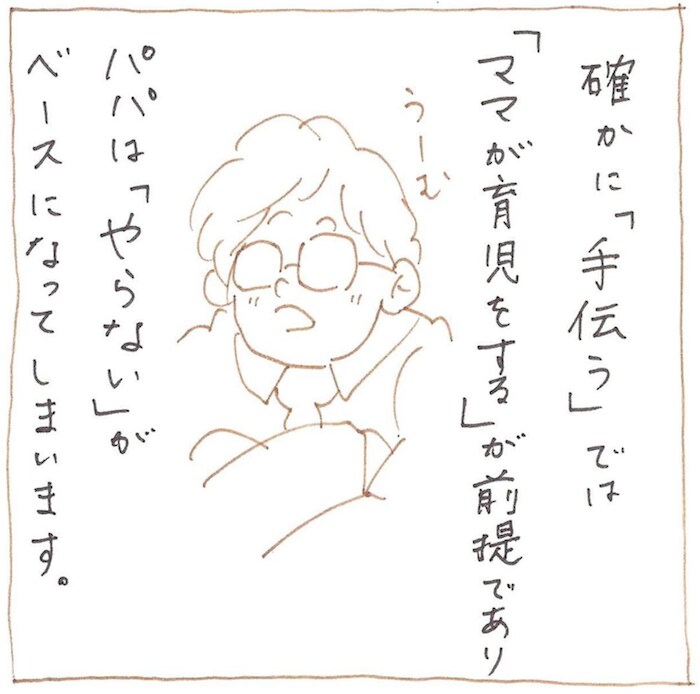 確かに「手伝う」では
「ママが育児をする」が前提であり
うーむ
パパは「やらない」が
ベースになってしまいます。